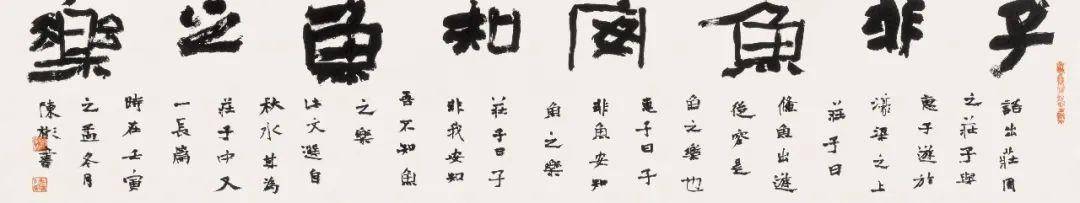 子非魚安知魚之樂
語出莊周
之莊子與
惠子遊於
濠梁之上
莊子曰
儵魚出遊
從容是
魚之樂也
惠子曰子
非魚安知
魚之樂
莊子曰子
非我安知
吾不知魚
之樂
此文選自
秋水其為
莊子中又
一長篇
時在壬寅
之孟冬月
陳彬書